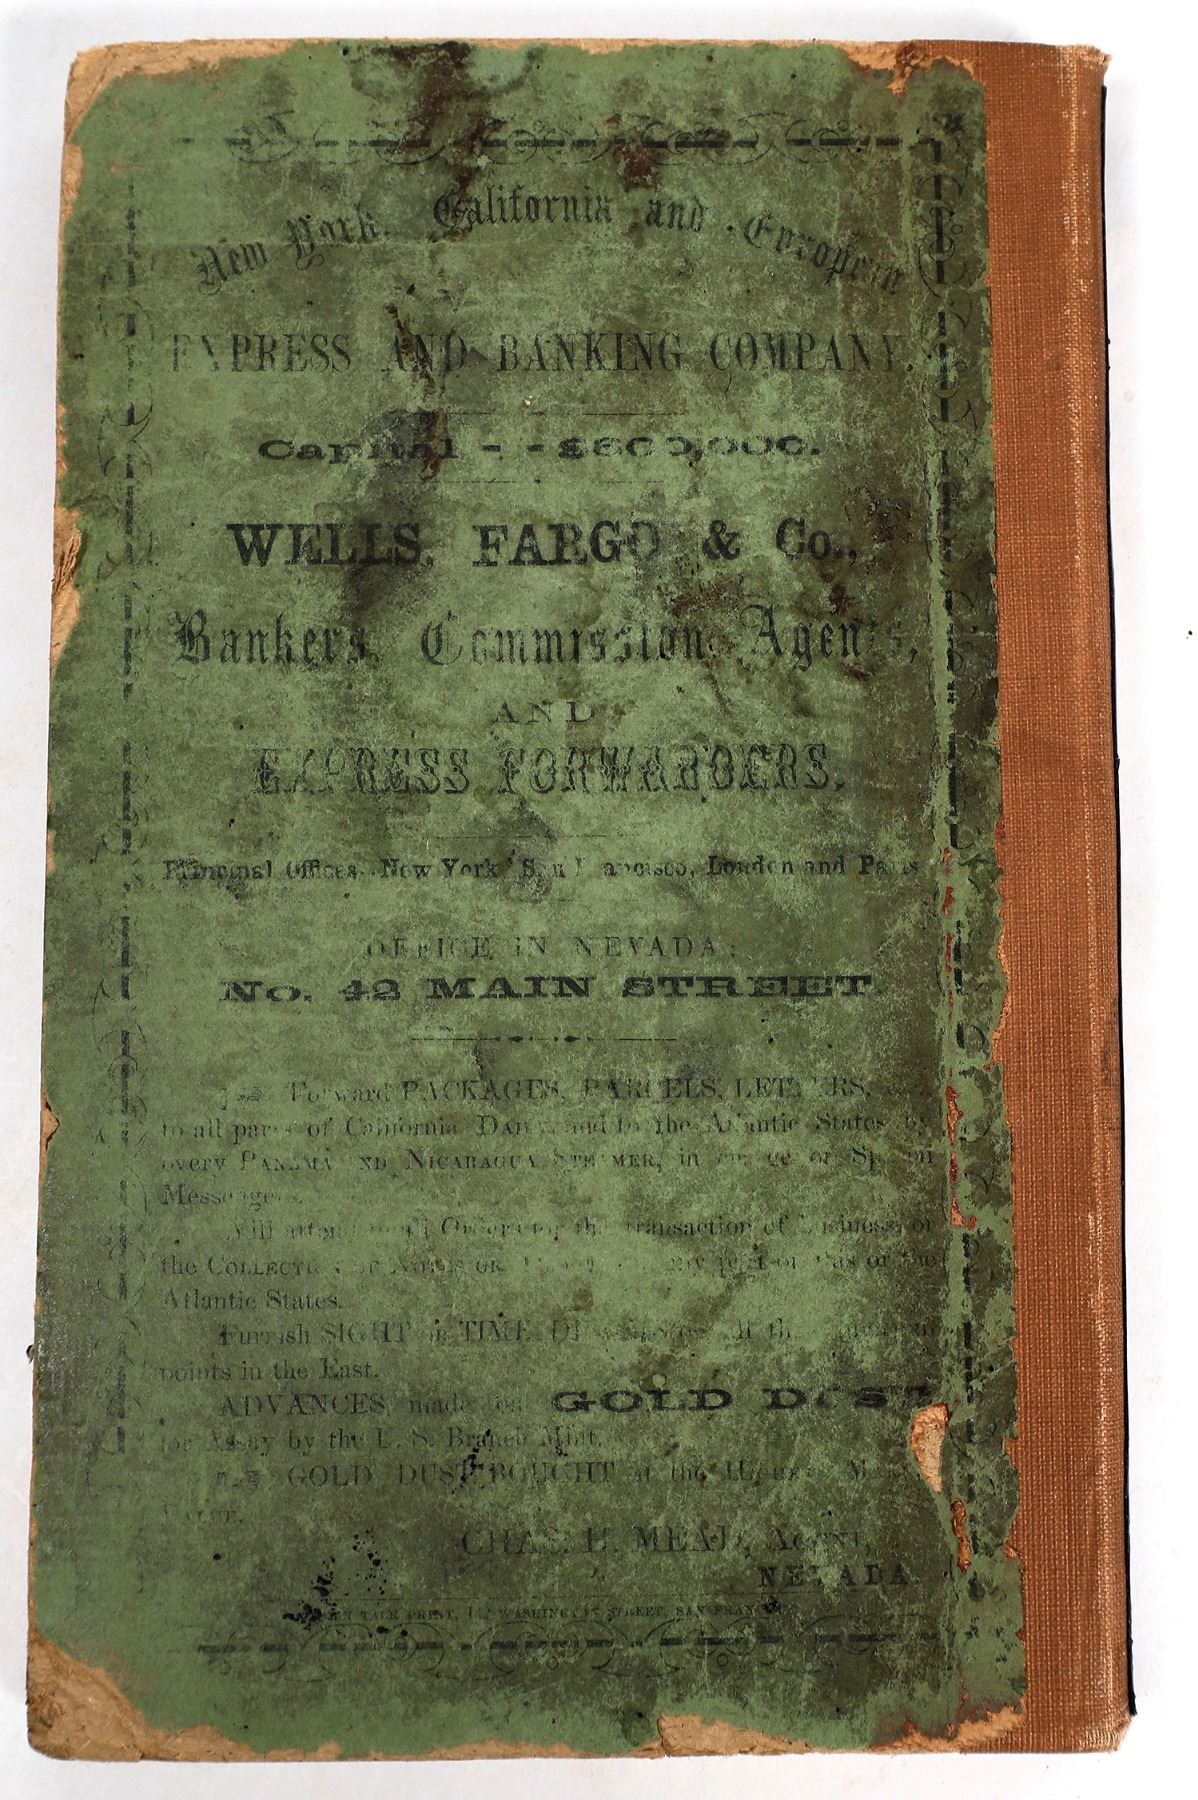 New York, California and European
EXPRESS AND BANKING COMPANY.
Capital - - $600,000.
WELLS, FARGO & Co.,
Bankers, Commission Agents,
AND
EXPRESS FORWARDERS.
Principal Offices, New York, San Francisco, London and Paris
OFFICE IN NEVADA:
No. 42 MAIN STREET.
Forward PACKAGES, PARCELS, LETTERS,
to all parts of California DAILY, and to the Atlantic States by
every PANAMA AND NICARAGUA STEAMER, in charge of Special
Messengers.
Will attend to all Orders for the transaction of business, or
the COLLECTION OF NOTES OR any part of this or the
Atlantic States.
Furnish SIGHT or TIME on all the
points in the East.
ADVANCES made on GOLD DUST
for Assay by the U. S. Branch Mint.
GOLD DUST BOUGHT at the Highest
VALUE.
CHAS. H. MEAD, AGENT,
NEVADA
PRINT, WASHINGTON STREET, SAN FRANCISCO